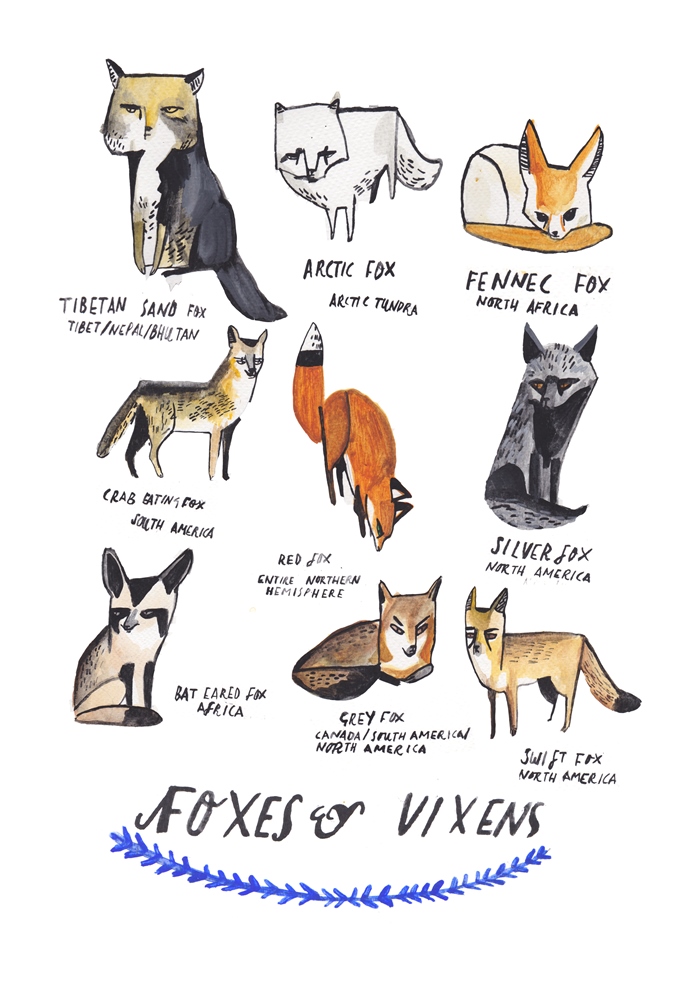 TIBETAN SAND FOX
TIBET/NEPAL/BHUTAN
ARCTIC FOX
ARCTIC TUNDRA
FENNEC FOX
NORTH AFRICA
CRAB EATING FOX
SOUTH AMERICA
RED FOX
ENTIRE NORTHERN
HEMISPHERE
SILVER FOX
NORTH AMERICA
BAT EARED FOX
AFRICA
GREY FOX
CANADA/SOUTH AMERICA/
NORTH AMERICA
SWIFT FOX
NORTH AMERICA
FOXES & VIXENS